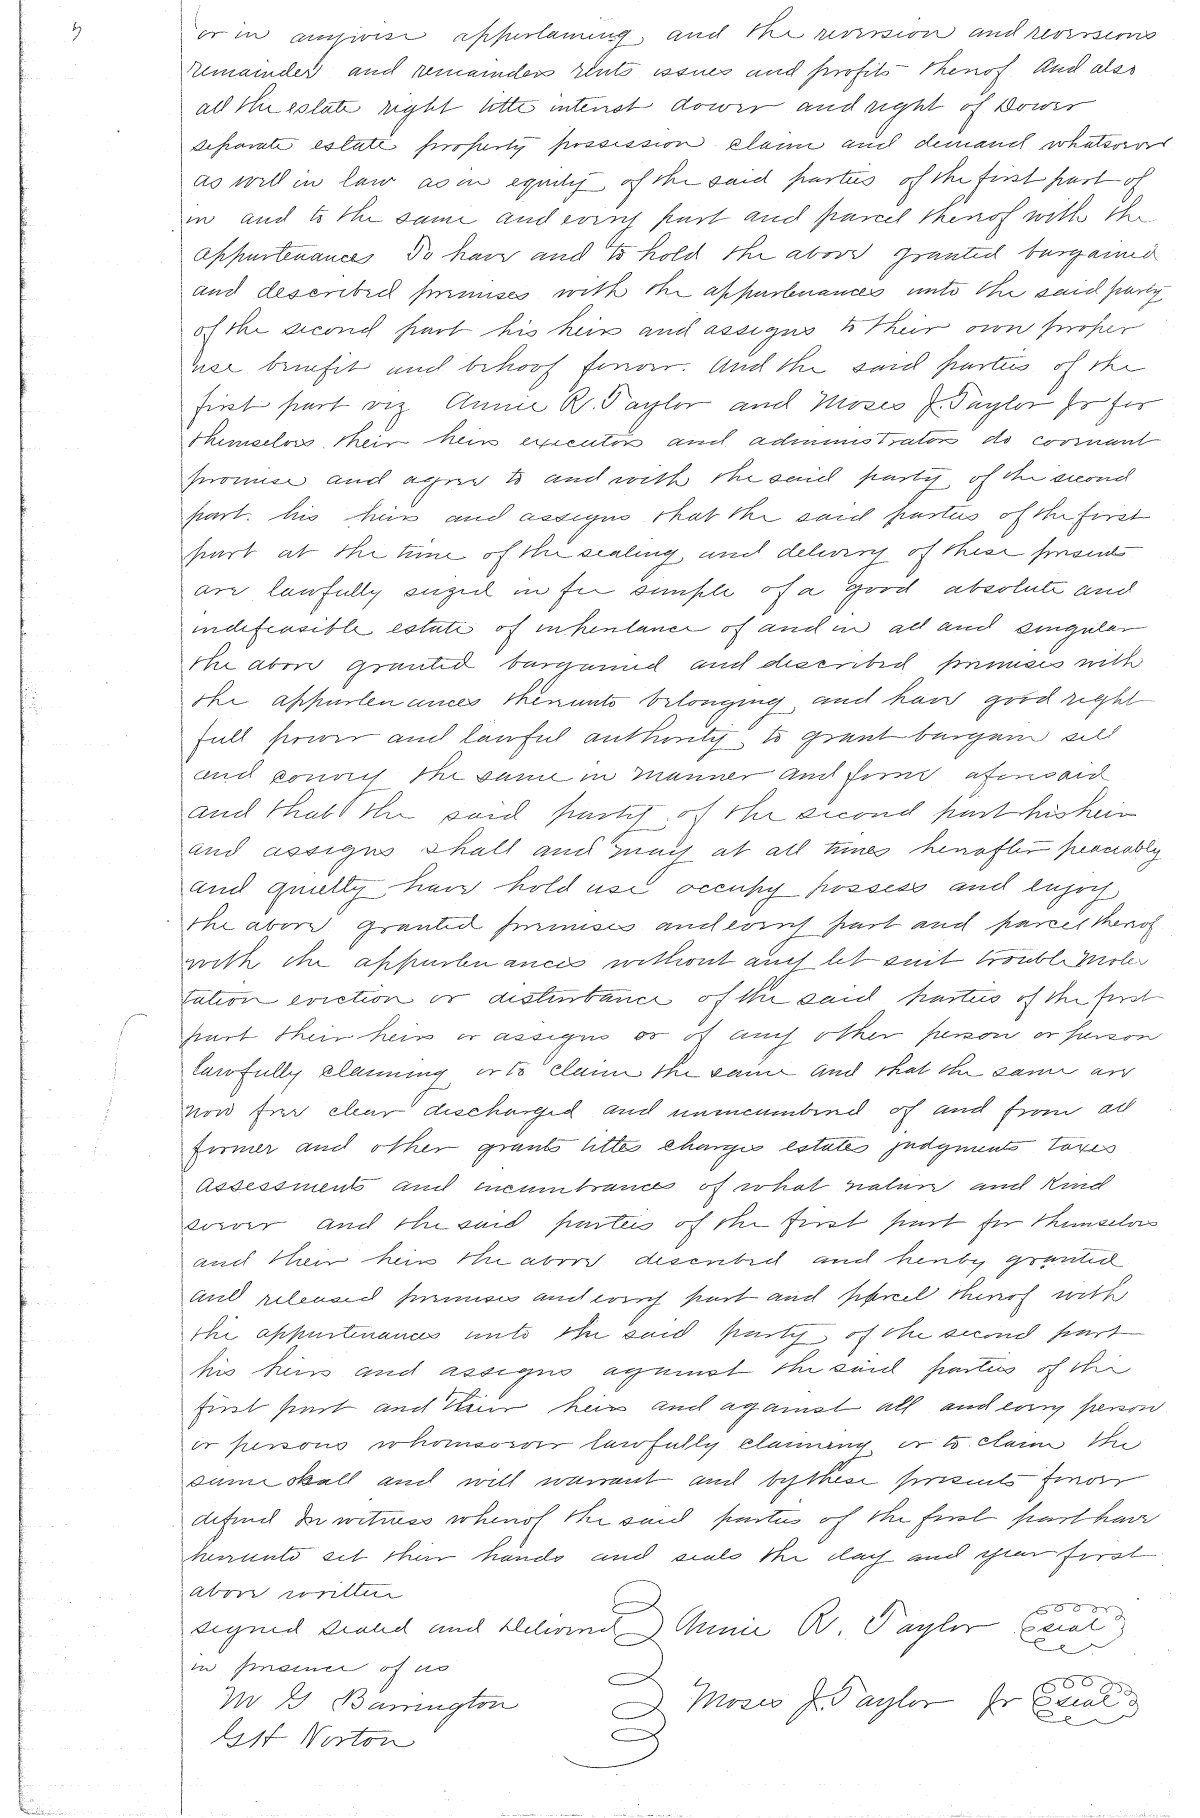 or in anywise appertaining and the reversion and reversions
remainder and remainders rents issues and profits thereof And also
all the estate right title interest dower and right of Dower
separate estate property possession claim and demand whatsoever
as well in law as in equity of the said parties of the first part of
in and to the same and every part and parcel thereof with the
appurtenances To have and to hold the above granted bargained
and described premises with the appurtenances unto the said party
of the second part his heirs and assigns to their own proper
use benefit and behoof forever. And the said parties of the
first part viz Annie R. Taylor and Moses J. Taylor Jr for
themselves their heirs executors and administrators do covenant
promise and agree to and with the said party of the second
part. his heirs and assigns that the said parties of the first
part at the time of the sealing and delivery of these presents
are lawfully seized in fee simple of a good absolute and
indefeasible estate of inheritance of and in all and singular
the above granted bargained and described premises with
the appurtenances thereunto belonging and have good right
full power and lawful authority to grant bargain sell
and convey the same in manner and form aforesaid
and that the said party of the second part his heirs
and assigns shall and may at all times hereafter peaceably
and quietly have hold use occupy possess and enjoy
the above granted premises and every part and parcel thereof
with the appurtenances without any let suit trouble moles
tation eviction or disturbance of the said parties of the first
part their heirs or assigns or of any other person or person
lawfully claiming or to claim the same and that the same are
now free clear discharged and unincumbered of and from all
former and other grants titles charges estates judgments taxes
Assessments and incumbrances of what nature and kind
soever and the said parties of the first part for themselves
and their heirs the above described and hereby granted
and released premises and every part and parcel thereof with
the appurtenances unto the said party of the second part
his heirs and assigns against the said parties of the
first part and their heirs and against all and every person
or persons whomsoever lawfully claiming or to claim the
same shall and will warrant and by these presents forever
defend In witness whereof the said parties of the first part have
hereunto set their hands and seals the day and year first
above written
signed sealed and delivered Annie R. Taylor seal
in presence of us
M G Barrington Moses J. Taylor Jr seal
G H Norton